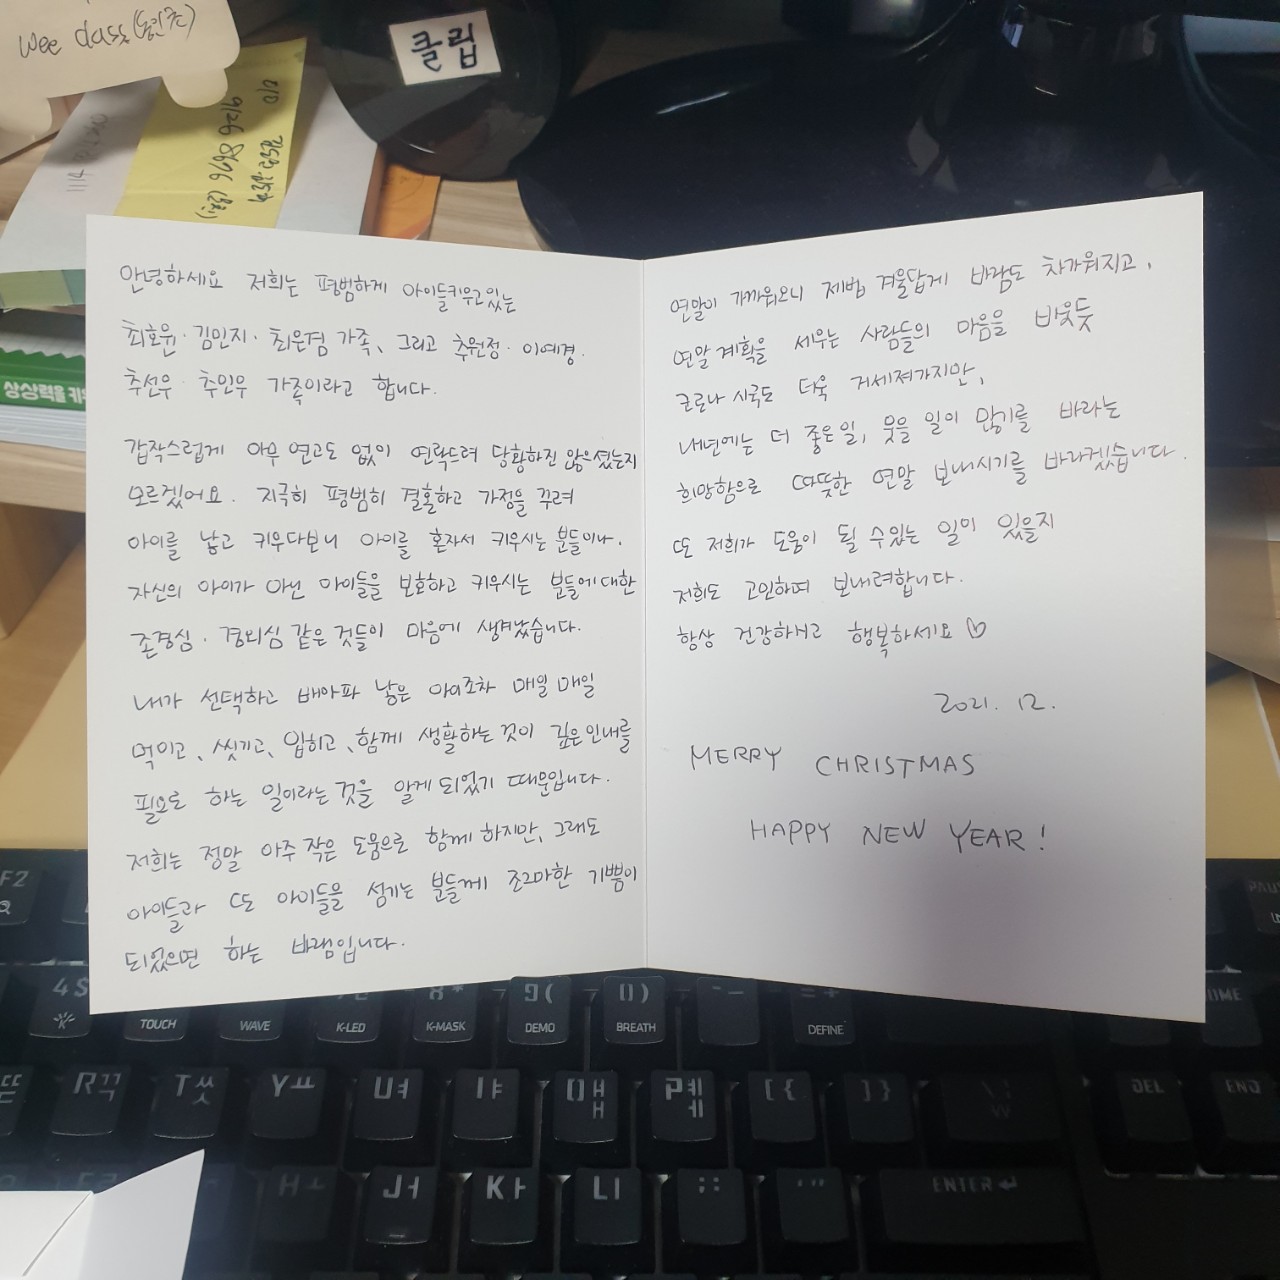 wee class
클립
상상력을 키
안녕하세요 저희는 평범하게 아이들키우고있는
최호원·김민지·최은겸 가족、그리고 추원정·이예경·
추선우·추인우 가족이라고 합니다.
갑작스럽게 아무 연고도 없이 연락드려 당황하진 않으셨는지
모르겠어요. 지극히 평범히 결혼하고 가정을 꾸려
아이를 낳고 키우다보니 아이를 혼자서 키우시는 분들이나,
자신의 아이가 아닌 아이들을 보호하고 키우시는 분들에대한
존경심·경외심 같은 것들이 마음에 생겨났습니다.
내가 선택하고 배아파 낳은 아이조차 매일 매일
먹이고、씻기고、입히고、함께 생활하는 것이 깊은 인내를
필요로 하는 일이라는 것을 알게 되었기 때문입니다.
저희는 정말 아주 작은 도움으로 함께 하지만, 그래도
아이들과 또 아이들을 섬기는 분들께 조그마한 기쁨이
되었으면 하는 바램입니다.
연말이 가까워오니 제법 겨울답게 바람도 차가워지고,
연말 계획을 세우는 사람들의 마음을 비웃듯
코로나 시국도 더욱 거세져가지만,
내년에는 더 좋은일, 웃을 일이 많기를 바라는
희망함으로 따뜻한 연말 보내시기를 바라겠습니다.
또 저희가 도움이 될 수있는 일이 있을지
저희도 고민하며 보내려합니다.
항상 건강하시고 행복하세요 ♡
2021. 12.
MERRY CHRISTMAS
HAPPY NEW YEAR!
F2
4 $ 8 * 9 ( 0 ) - _ = +
TOUCH WAVE K-LED K-MASK DEMO BREATH DEFINE
R ㄲ T ㅆ Y ㅛ U ㅕ I ㅑ O ㅐ ㅒ P ㅔ ㅖ [ { ] } \ | DEL END
H ㅗ J ㅓ K ㅏ L ㅣ ; : ' " ENTER